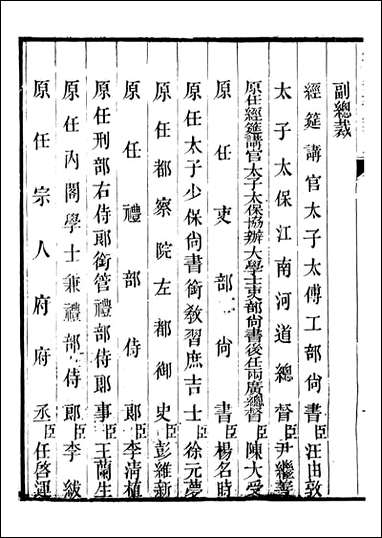 副總裁
經筵講官太子太傅工部尚書臣汪由敦
太子太保江南河道總督臣尹繼善
原任經筵講官太子太保協辦大學士吏部尚書後任兩廣總督臣陳大受
原任吏部尚書臣楊名時
原任太子少保尚書銜教習庶吉士臣徐元夢
原任都察院左都御史臣彭維新
原任禮部侍郎臣李清植
原任刑部右侍郎銜管禮部侍郎事臣王蘭生
原任內閣學士兼禮部侍郎臣李紱
原任宗人府府丞臣任啓運